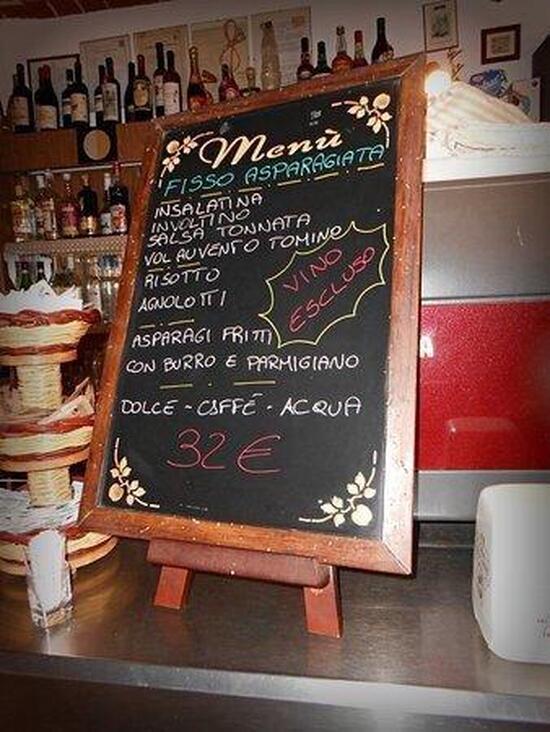 Menù
FISSO ASPARAGIATA
INSALATINA
INVOLTINO
SALSA TONNATA
VOL AUVENTO TOMINO
RISOTTO
AGNOLOTTI
VINO
ESCLUSO
ASPARAGI FRITTI
CON BURRO E PARMIGIANO
DOLCE - CAFFÉ - ACQUA
32 €